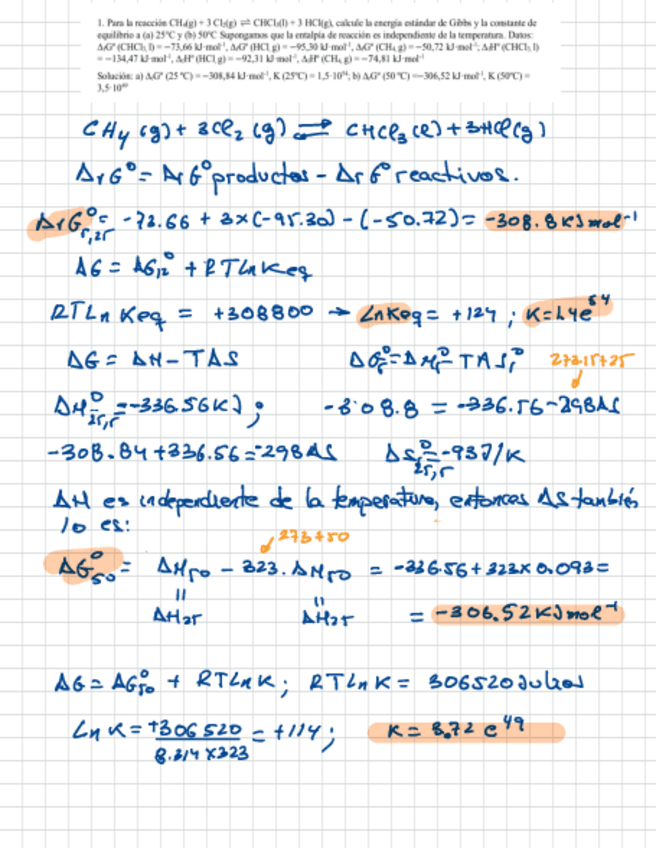 1. Para la reacción CH₄(g) + 3 Cl₂(g) ⇌ CHCl₃(l) + 3 HCl(g), calcule la energía estándar de Gibbs y la constante de
equilibrio a (a) 25°C y (b) 50°C Supongamos que la entalpía de reacción es independiente de la temperatura. Datos:
ΔfG° (CHCl₃, l) = −73,66 kJ·mol⁻¹, ΔfG° (HCl, g) = −95,30 kJ·mol⁻¹, ΔfG° (CH₄, g) = −50,72 kJ·mol⁻¹; ΔfH° (CHCl₃, l)
= −134,47 kJ·mol⁻¹, ΔfH° (HCl, g) = −92,31 kJ·mol⁻¹, ΔfH° (CH₄, g) = −74,81 kJ·mol⁻¹
Solución: a) ΔrG° (25 °C) = −308,84 kJ·mol⁻¹, K (25°C) = 1,5·10⁵⁴; b) ΔrG° (50 °C) = −306,52 kJ·mol⁻¹, K (50°C) =
3,5·10⁴⁹
CH₄ (g) + 3Cl₂ (g) ⇌ CHCl₃(l) + 3HCl(g)
ΔrG° = ΔrG° productos - ΔrG° reactivos.
ΔrG°r,25 = -73.66 + 3×(-95.30) - (-50.72) = -308.8 KJ mol⁻¹
ΔG = ΔG°r + RTLn Keq
RTLn Keq = +308800 → LnKeq = +124 ; K=1.4e⁵⁴
ΔG = ΔH - TΔS ΔG°r = ΔH°r - TΔS°r 273.15+25
ΔH°25,r = -336.56KJ ; -308.8 = -336.56 - 298ΔS
-308.84 + 336.56 = -298ΔS ΔS°25,r = -93J/K
ΔH es independiente de la temperatura, entonces ΔS también
lo es:
273+50
ΔG°50 = ΔH50 - 323. ΔH50 = -336.56 + 323×0.093 =
ΔH25 ΔH25 = -306.52 KJ mol⁻¹
ΔG = ΔG°50 + RTLnK ; RTLnK = 306520 Julios
LnK = +306520 / 8.314×323 = +114 ; K = 3.72 e⁴⁹